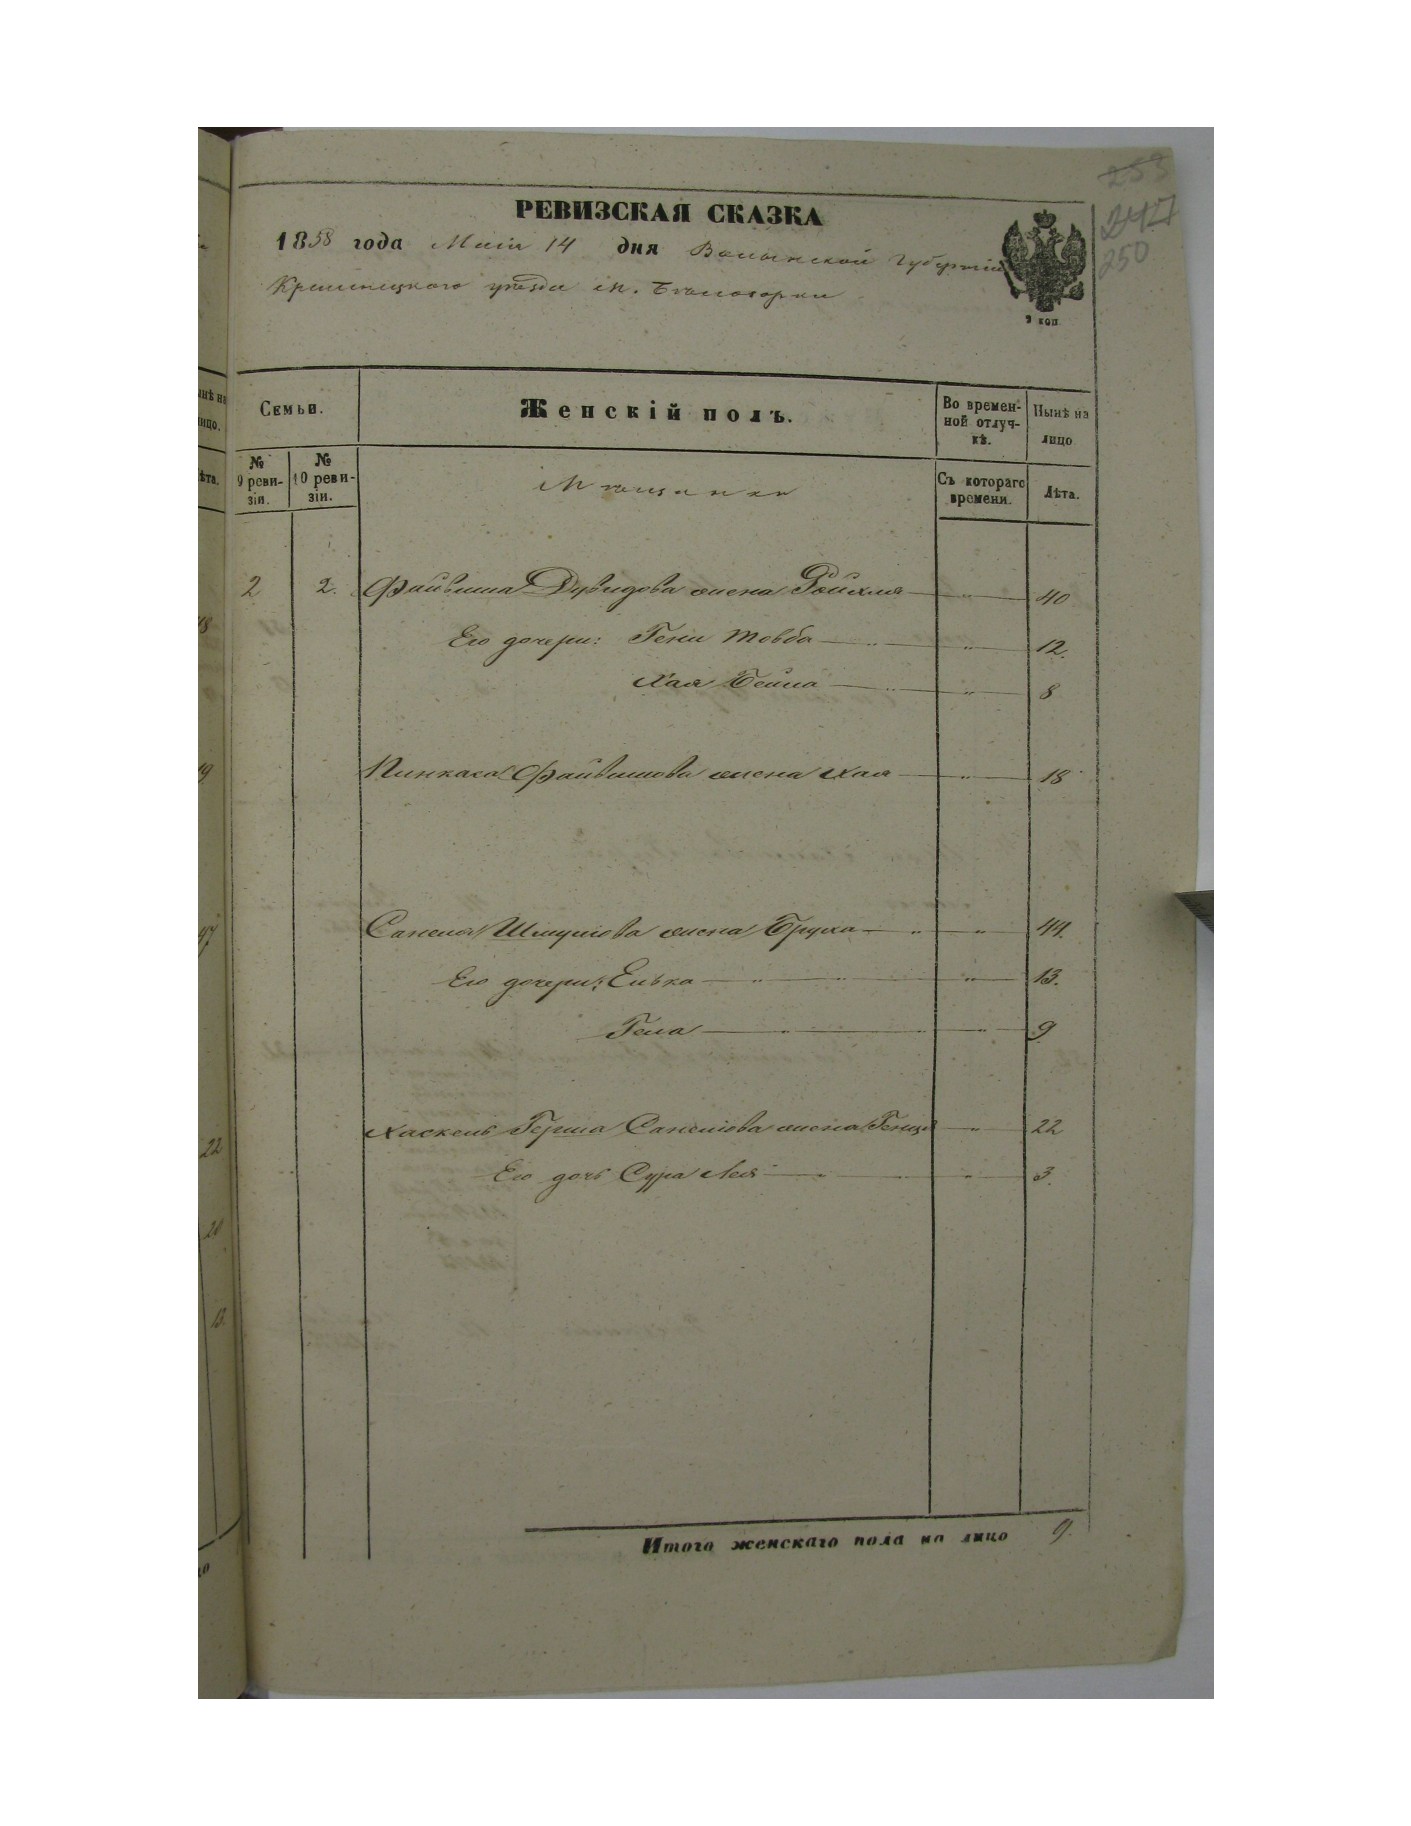 253
247
250
РЕВИЗСКАЯ СКАЗКА
1858 года Маія 14 дня Волынской Губерніи
Кременецкого уѣзда м. Бѣлозорки
2 коп
Семьи.
Женскій полъ.
Во времен-
ной отлуч-
кѣ.
Нынѣ на
лицо
№
9 реви-
зіи.
№
10 реви-
зіи.
Мѣщанки
Съ котораго
времени.
Лѣта.
2 2. Файвиша Дувидова жена Ройхля 40
Его дочери: Гени Товба 12.
Хая Бейла 8
Пинкаса Файвишова жена Хая 18
Санеля Шмулiова жена Бруха 44.
Его дочери: Елька 13.
Гела 9
Хаскель Герша Санелiова жена Генця 22
Его дочь Сура Лея 3.
Итого женскаго пола на лицо 9